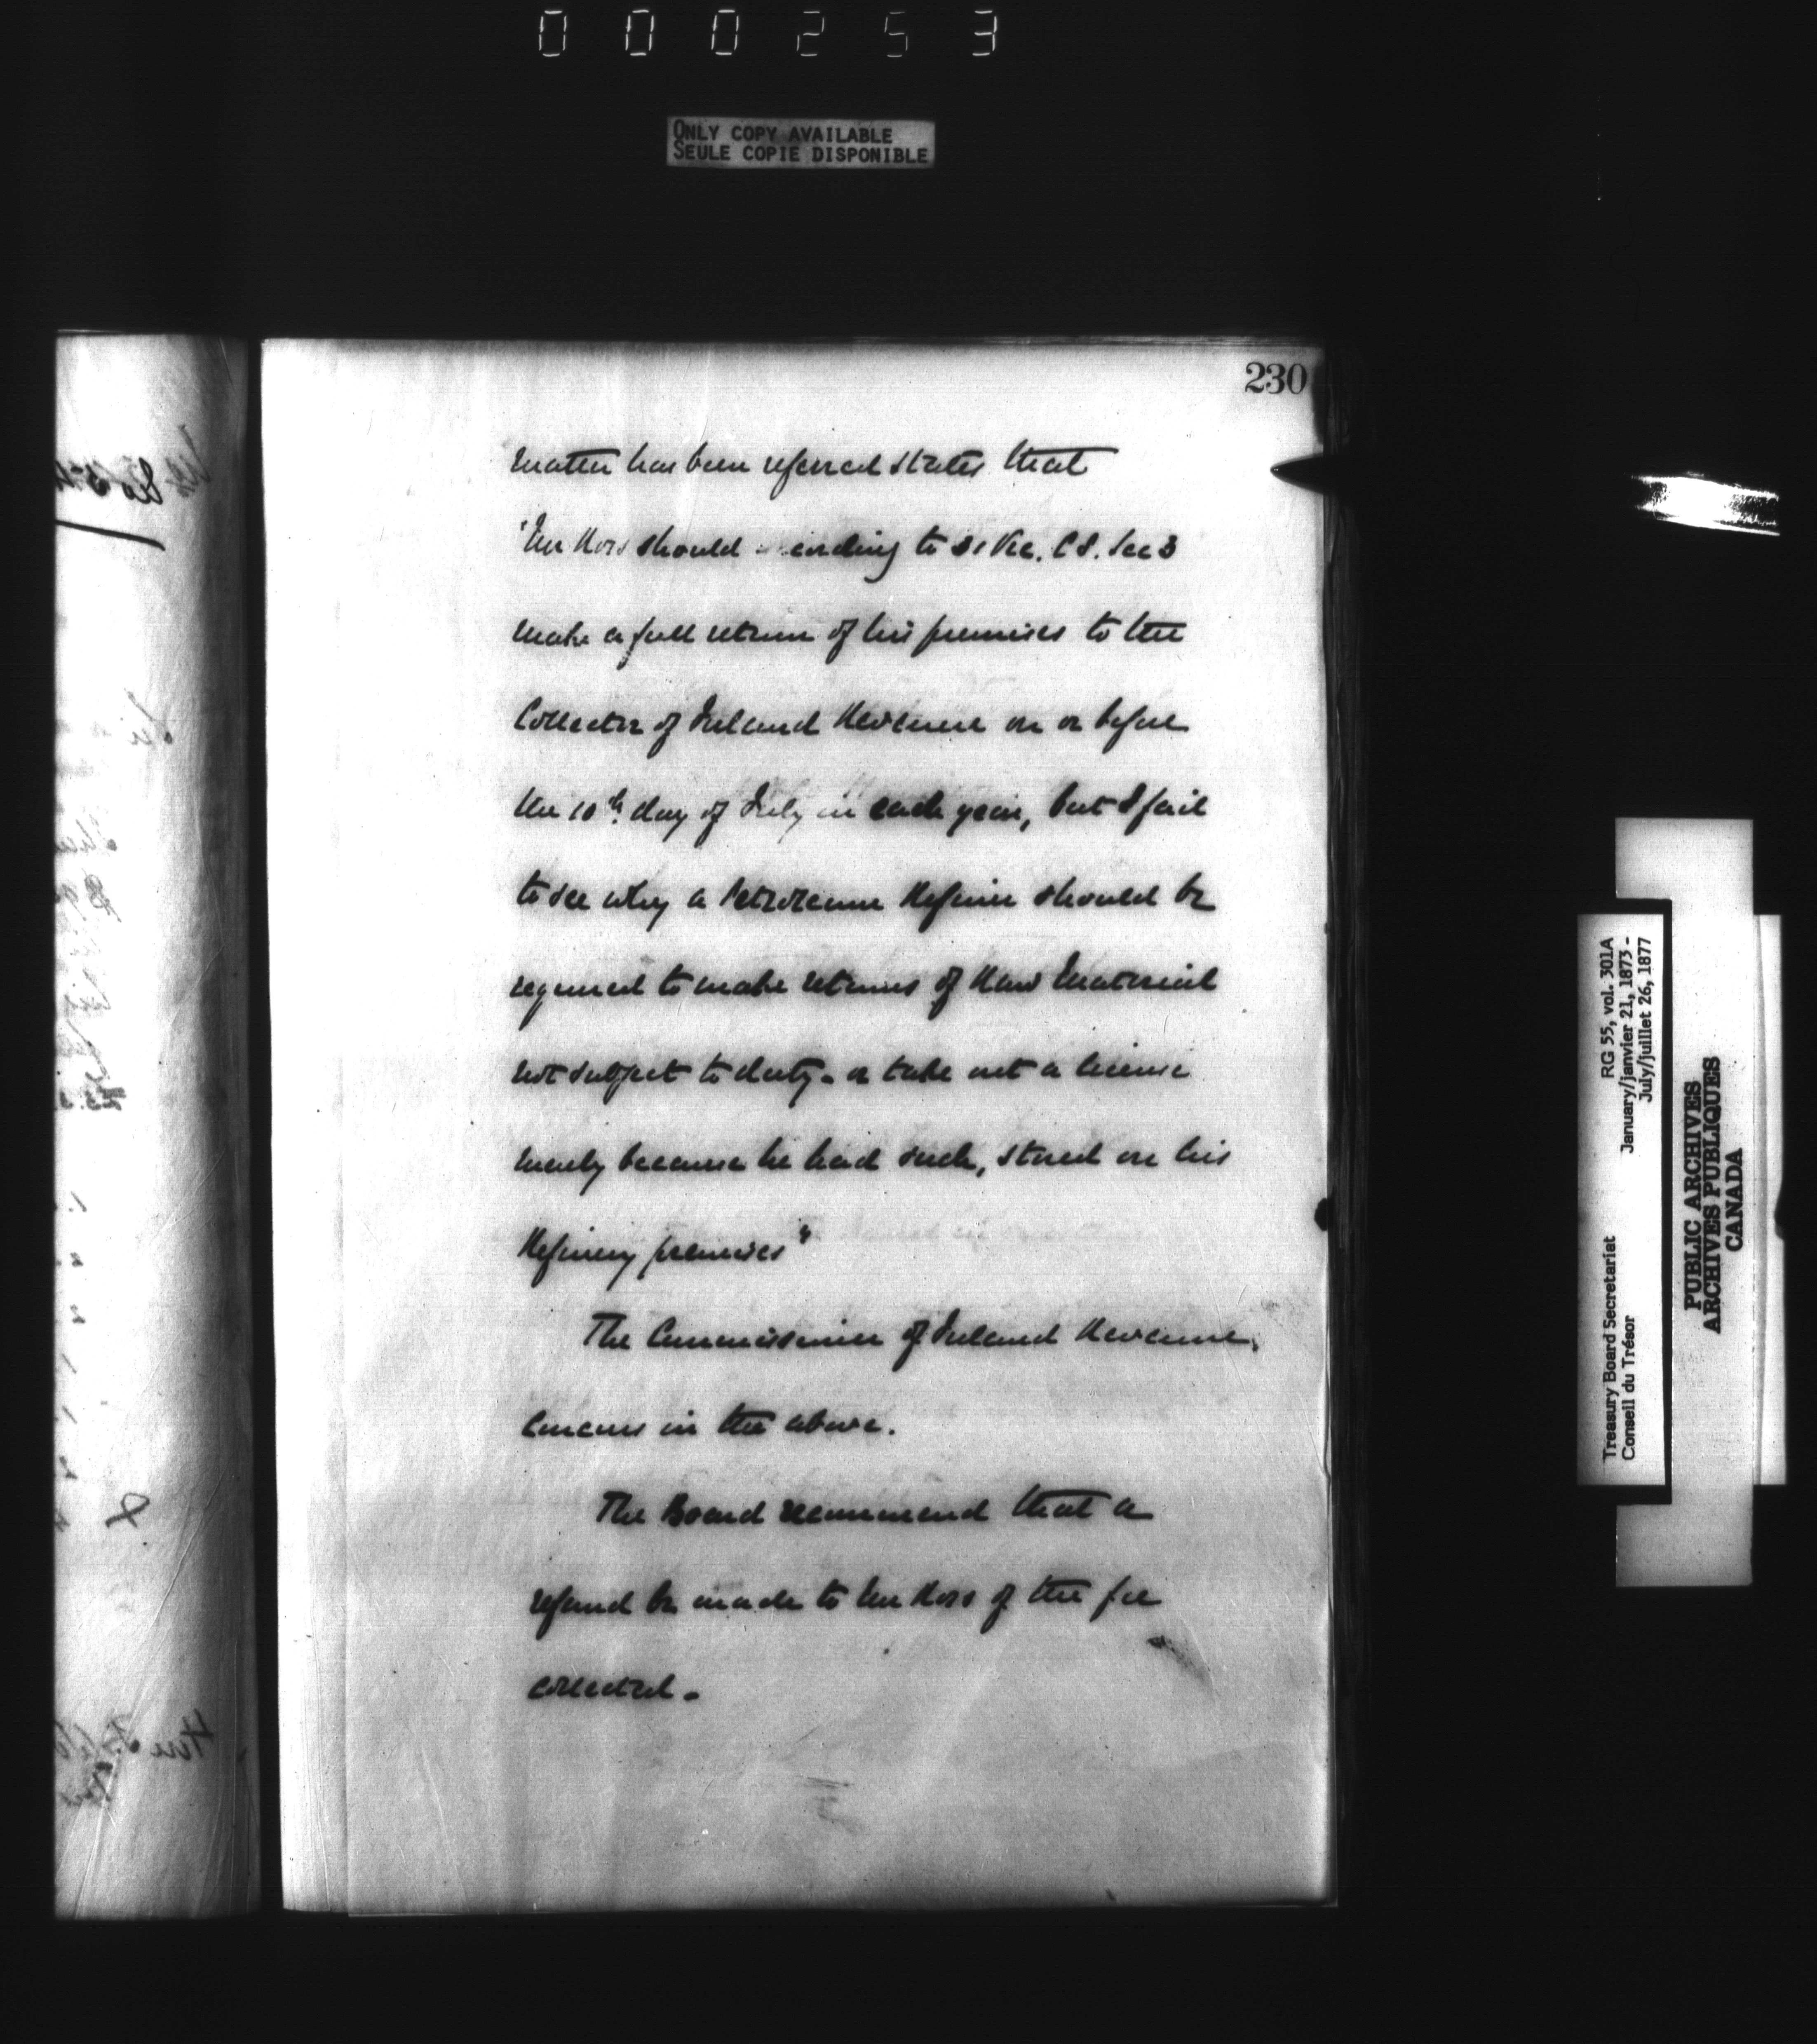 000253
ONLY COPY AVAILABLE
SEULE COPIE DISPONIBLE
230
matter has been referred states that
should according to 31 Vic. C 8. Sec 3
make a full return of his premises to the
Collector of Inland Revenue on or before
the 10th day of July in each year, but I fail
to see why a Petroleum Refiner should be
required to make returns of Raw Material
not subject to duty - or take out a license
merely because he had such, stored on his
Refinery premises"
The Commissioner of Inland Revenue,
concurs in the above.
The Board recommend that a
refund be made to of the fee
collected -
Treasury Board Secretariat RG 55, vol. 301A
Conseil du Trésor January/janvier 21, 1873 -
July/juillet 26, 1877
PUBLIC ARCHIVES
ARCHIVES PUBLIQUES
CANADA